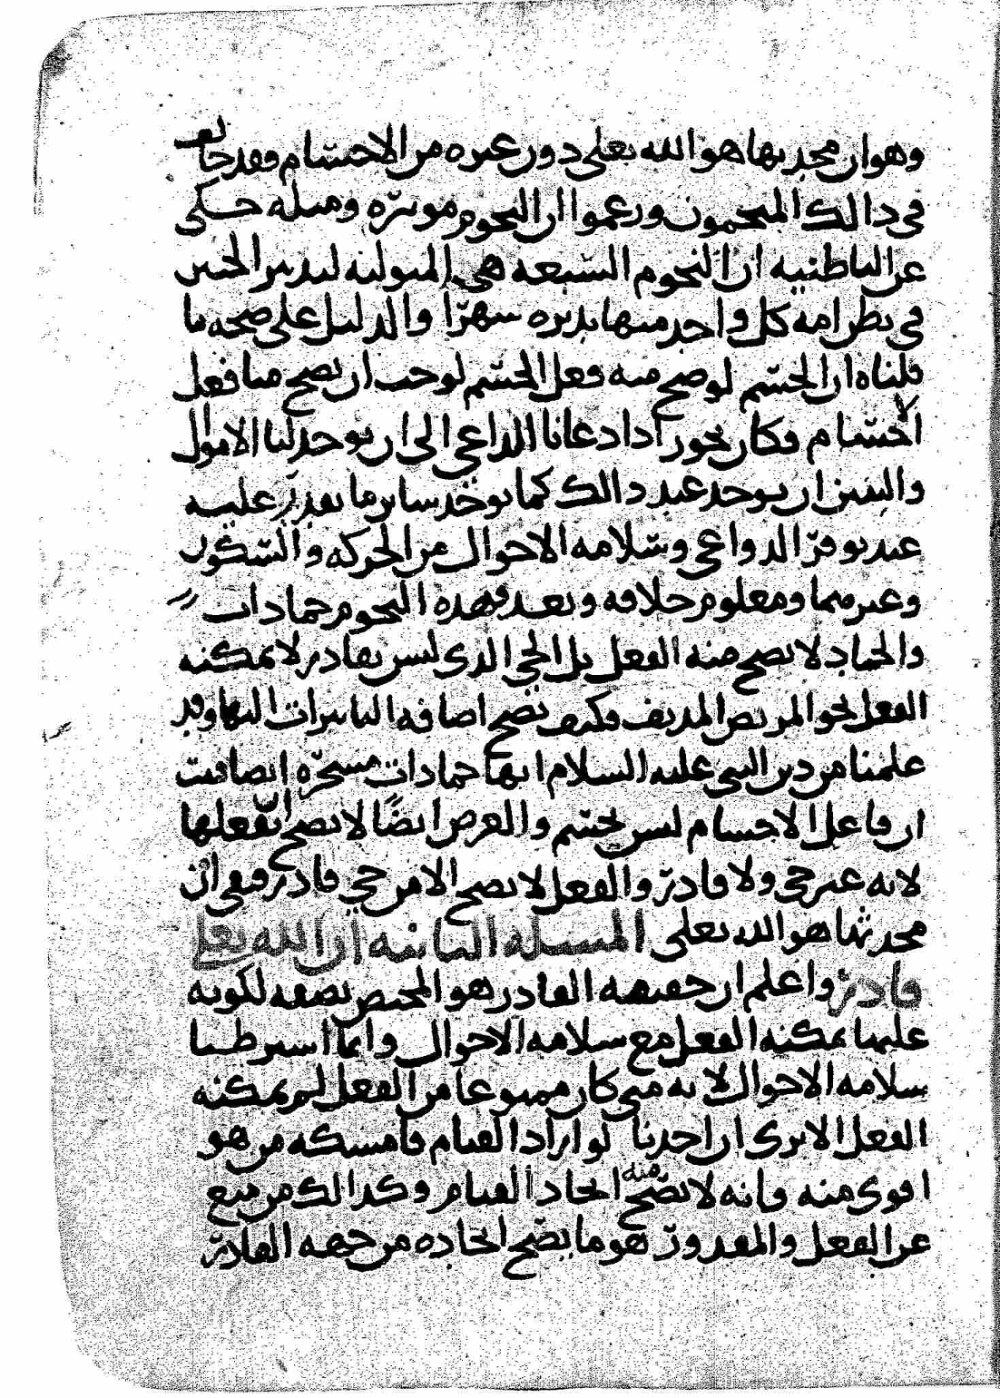 وهو ان محدثها هو الله تعلى دون غيره من الاجسام وقد خالف
في ذالك المنجمون وزعموا ان النجوم موثرة ومثله حكي
عن الباطنيه ان النجوم السبعه هي المتوليه لتدبير الجنين
في بطن امه كل واحد منها يدبره شهرًا والدليل على صحه ما
قلناه ان الجسم لو صح منه فعل الجسم لوجب ان يصح منا فعل
الاجسام فكان يجوز اذا دعانا الداعي الى ان يوجد لنا الاموال
والبنين ان يوجد عند ذالك كما يوجد سائر ما نقدر عليه
عند توفر الدواعي وسلامه الاحوال من الحركه والسكون
وغيرهما ومعلوم خلافه وبعد فهذه النجوم جمادات
والجماد لا يصح منه الفعل بل الحي الذي ليس بقادر لا يمكنه
الفعل نحو المريض المدنف فكيف تصح اضافه التاثيرات اليها وقد
علمنا من دين النبي عليه السلام انها جمادات مسخره ايضا فثبت
ان فاعل الاجسام ليس بجسم والعرض ايضًا لا يصح ان يفعلها
لانه غير حي ولا قادر والفعل لا يصح الا من حي قادر فبقي ان
محدثها هو الله تعلى المسله الثانيه ان الله تعلى
قادر واعلم ان حقيقه القادر هو المختص بصفه لكونه
عليها يمكنه الفعل مع سلامه الاحوال وانما اشترطنا
سلامه الاحوال لانه متى كان ممنوعا من الفعل لم يمكنه
الفعل الا ترى ان احدنا لو اراد القيام فامسكه من هو
اقوى منه فانه لا يصح منه ايجاد القيام وكذالك من منع
عن الفعل والمقدور هو ما يصح ايجاده من جهه القادر